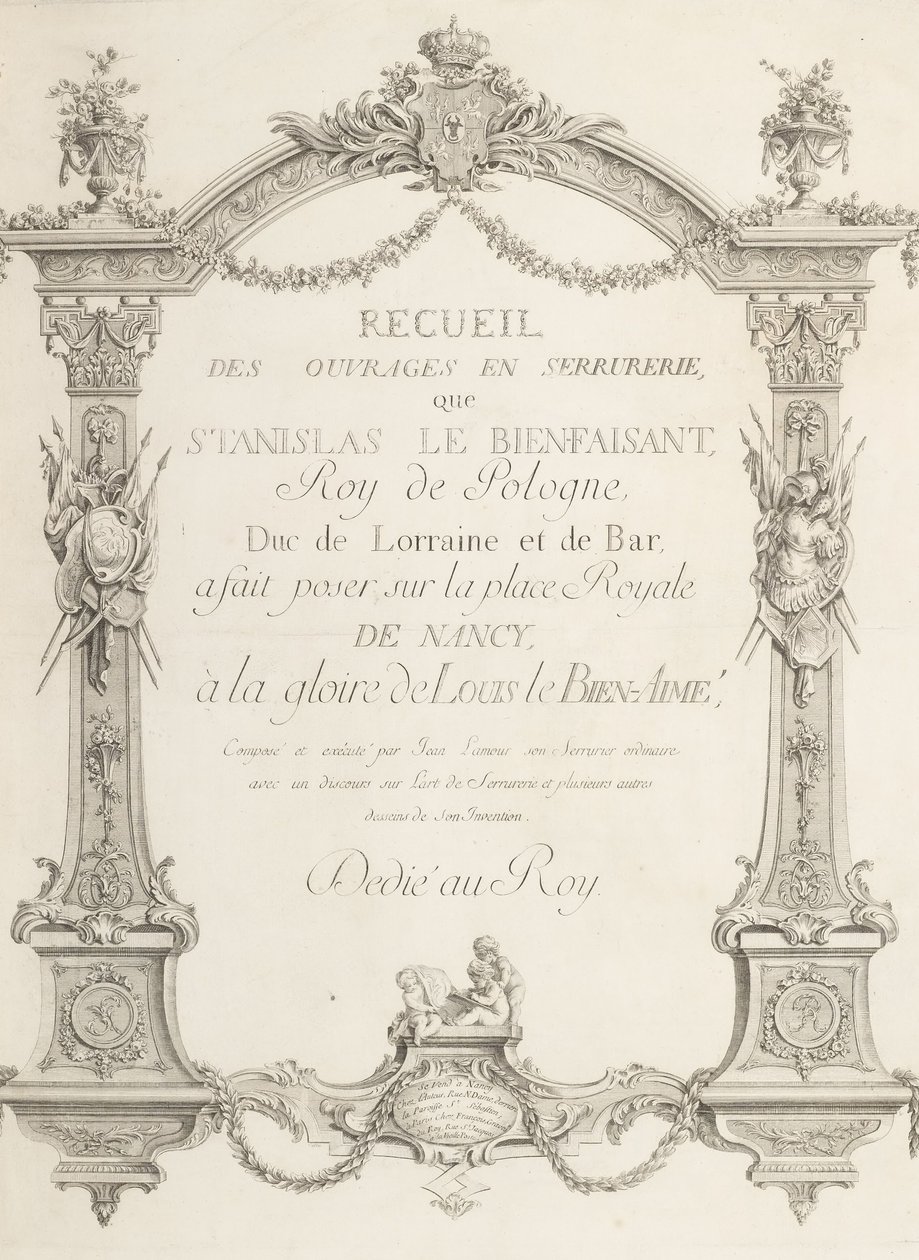 RECUEIL
DES OUVRAGES EN SERRURERIE,
que
STANISLAS LE BIEN-FAISANT,
Roy de Pologne,
Duc de Lorraine et de Bar,
a fait poser sur la place Royale
DE NANCY,
à la gloire de LOUIS le BIEN-AIMÉ;
Composé et exécuté par Jean Lamour son Serrurier ordinaire
avec un discours sur l'art de Serrurerie et plusieurs autres
desseins de son Invention.
Dedié au Roy.
Se Vend a Nancy
Chez l'Auteur, Rue N. Dame, devant
la Paroisse St. Sebastien,
a Paris Chez François
Roy, Rue St. Jacques
a la Vieille Poste